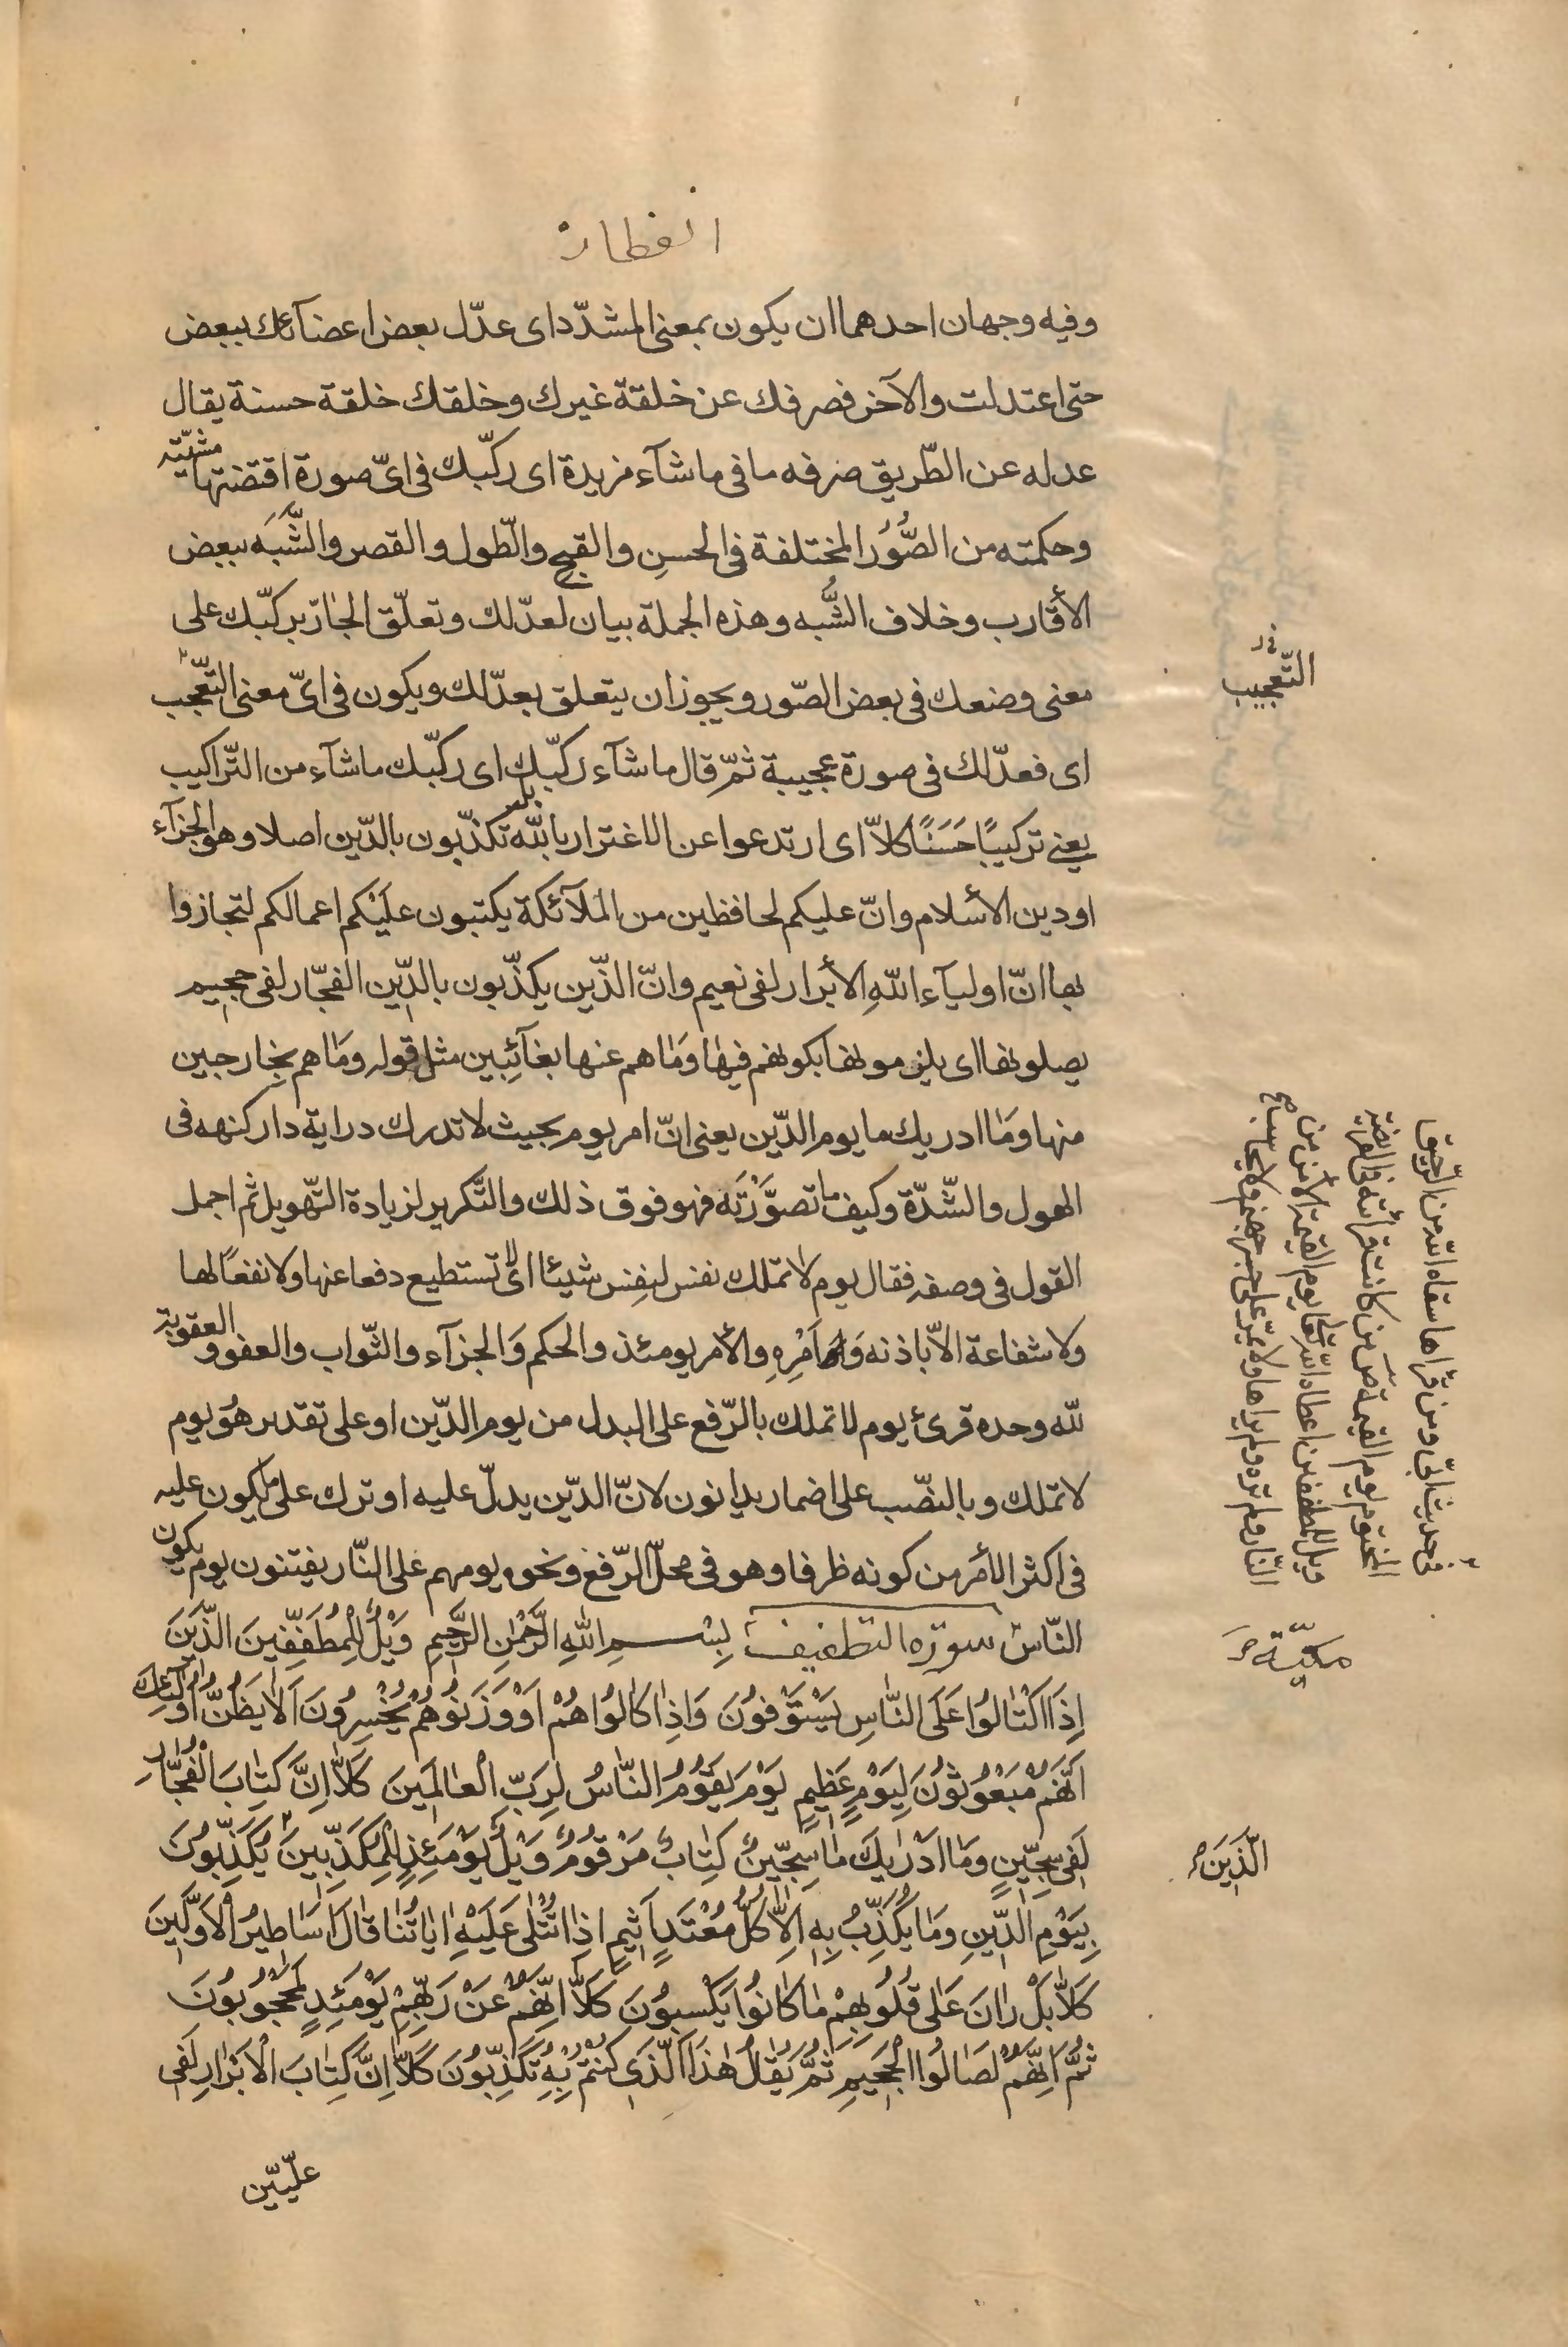 انفطار
وفيه وجهان احدهما ان يكون بمعنى المشدّد اى عدّل بعض اعضآئك ببعض
حتى اعتدلت والآخر فصرفك عن خلقة غيرك وخلقك خلقة حسنة يقال
عدله عن الطّريق صرفه ما فى ما شآء مزيدة اى ركّبك فى اىّ صورة اقتضتها مشيّته
وحكمته من الصُّوَر المختلفة فى الحسنِ والقبح والطّول والقصر والشَّبَه ببعض
الأقارب وخلاف الشَّبه وهذه الجملة بيان لعدّلك وتعلّق الجارّ بركّبك على
معنى وضعك فى بعض الصّور ويجوز ان يتعلق بعدّلك ويكون فى اىّ معنى التّعجّب
التّعجيب
اى فعدّلك فى صورة عجيبة ثمّ قال ما شآء ركّبك اى ركّبك ما شآء من التّراكيب
يعنى تركيبًا حَسَنًا كلاّ اى ارتدعوا عن الاغترار بالله بل تكذّبون بالدّين اصلا وهو الجزآء
او دين الأسلام وانّ عليكم لحافظين من الملآئكة يكتبون عليكم اعمالكم لتجازوا
بها انّ اوليآء اللهِ الأبرار لفى نعيم وانّ الذّين يكذّبون بالدّين الفجّار لفى جحيم
يصلونها اى يلزمونها بكونهم فيها وما هم عنها بغآئبين مثل قوله وما هم بخارجين
منها وما ادريك ما يوم الدّين يعنى انّ امر يوم بحيث لا تدرك دراية دار كنهه فى
الهول والشّدّة وكيف ما تصوَّرْتَه فهو فوق ذلك والتّكرير لزيادة التّهويل ثم اجمل
القول فى وصفه فقال يوم لا تملك نفس لنفس شيئا اى لا تستطيع دفعا عنها ولا نفعًا لها
ولا شفاعة الاّ باذنه وَامْرِهِ والأمر يومئذ والحكم وَالجزآء والثّواب والعفو والعقوبة
لله وحده قرئ يوم لا تملك بالرّفع على البدل من يوم الدّين او على تقدير هو يوم
لا تملك وبالنصّب على اضمار يدانون لانّ الدّين يدلّ عليه او ترك على ما يكون عليه
فى اكثر الأمر من كونه ظرفا وهو فى محلّ الرّفع ونحوه يوم هم على النّار يفتنون يوم يكون
النّاس سورة التطفيف بِسْمِ اللهِ الرَّحْمٰنِ الرَّحِيمِ وَيْلٌ لِلْمُطَفِّفِينَ الَّذِينَ
مكيّة
اِذَا اكْتَالُوا عَلَى النَّاسِ يَسْتَوْفُونَ وَاِذَا كَالُوا هُمْ اَوْ وَزَنُوهُمْ يُخْسِرُونَ اَلَا يَظُنُّ اُولٰئِكَ
اَنَّهُمْ مَبْعُوثُونَ لِيَوْمٍ عَظِيمٍ يَوْمَ يَقُومُ النَّاسُ لِرَبِّ الْعَالَمِينَ كَلاَّ اِنَّ كِتَابَ الْفُجَّارِ
لَفِى سِجِّينٍ وَمَا اَدْرٰيكَ مَا سِجِّينٌ كِتَابٌ مَرْقُومٌ وَيْلٌ يَوْمَئِذٍ لِلْمُكَذِّبِينَ يُكَذِّبُونَ
الَّذِينَ
بِيَوْمِ الدِّينِ وَمَا يُكَذِّبُ بِهِ اِلاَّ كُلُّ مُعْتَدٍ اَثِيمٍ اِذَا تُتْلٰى عَلَيْهِ اٰيَاتُنَا قَالَ اَسَاطِيرُ الْاَوَّلِينَ
كَلاَّ بَلْ رَانَ عَلٰى قُلُوبِهِمْ مَا كَانُوا يَكْسِبُونَ كَلاَّ اِنَّهُمْ عَنْ رَبِّهِمْ يَوْمَئِذٍ لَمَحْجُوبُونَ
ثُمَّ اِنَّهُمْ لَصَالُوا الْجَحِيمِ ثُمَّ يُقَالُ هٰذَا الَّذِى كُنْتُمْ بِهِ تُكَذِّبُونَ كَلاَّ اِنَّ كِتَابَ الْاَبْرَارِ لَفِى
علّيّين
فى حديث ابىّ ومن قرأها سقاه الله من الرّحيق
المختوم يوم القيمة من كانت قرائته فى الفريضة
ويل للمطففين اعطاه الله تعالى يوم القيمة الأمن من
النّار ولم تره ولم يرها ولا يمرّ على جسر جهنم ولا يحاسب